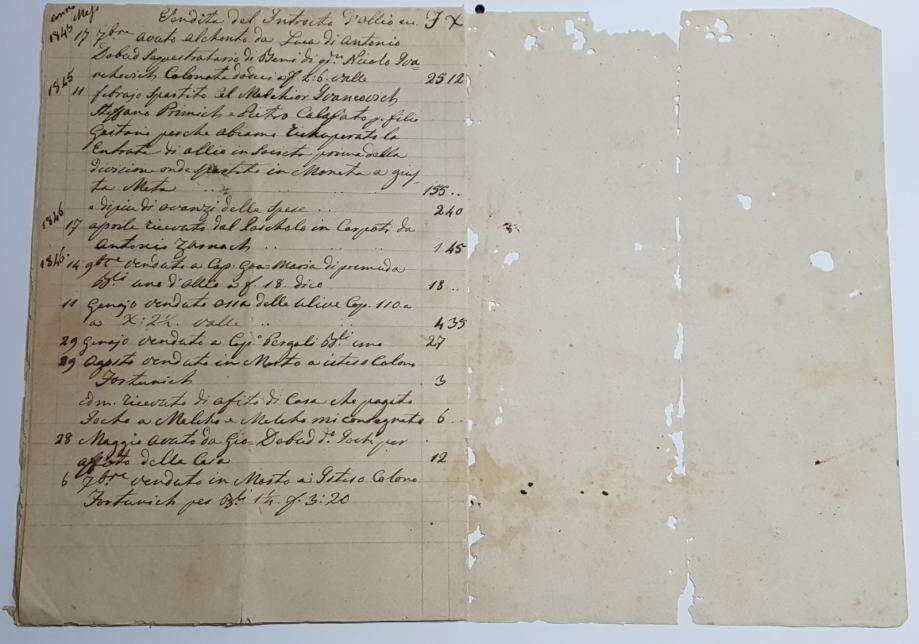 anno Mese Vendita del Introito d'ollio eu. F X
1845 17 7bre avuto al conto da Luca di Antonio
Dobud Sequestratario di Beni di qm Nicolo Iva-
nchovich Colonato dodici a f 2:6. valle 25 12
1845 11 febrajo spartito al Melchior Ivancovich
Steffano Primich e Pietro Calafato p. filio
Gaetano perche abiamo Richuperato la
Entrata di ollio in prima della
divicione onde spartito in Moneta a gius-
ta Meta 155 ..
e dipiu di avanzi delle spese .. 2 40
1846 17 aprile ricevuto dal Pascholo in da
Antonio Zarnach .. 1 45
1845 14 9bre venduto a Cap. Gea Maria di premuda
uno d'ollio a f. 18. dico 18 ..
11 Genajo venduto delle ulive Cop. 110 a
a X: 2½. valle .. 4 35
29 Genajo venduto a Cap. Pergoli uno 27
29 Agosto venduto in Mosto a isteso Colono
Fortunich 3
idm. ricevuto di afito di Casa che pagato
a Melcho e Melcho mi consegnato 6 ..
28 Maggio avuto da Gio. Dobud per
affito della Casa 12
6 7bre venduto in Mosto a Isteso Colono
Fortunich per 1¼ f. 3:20